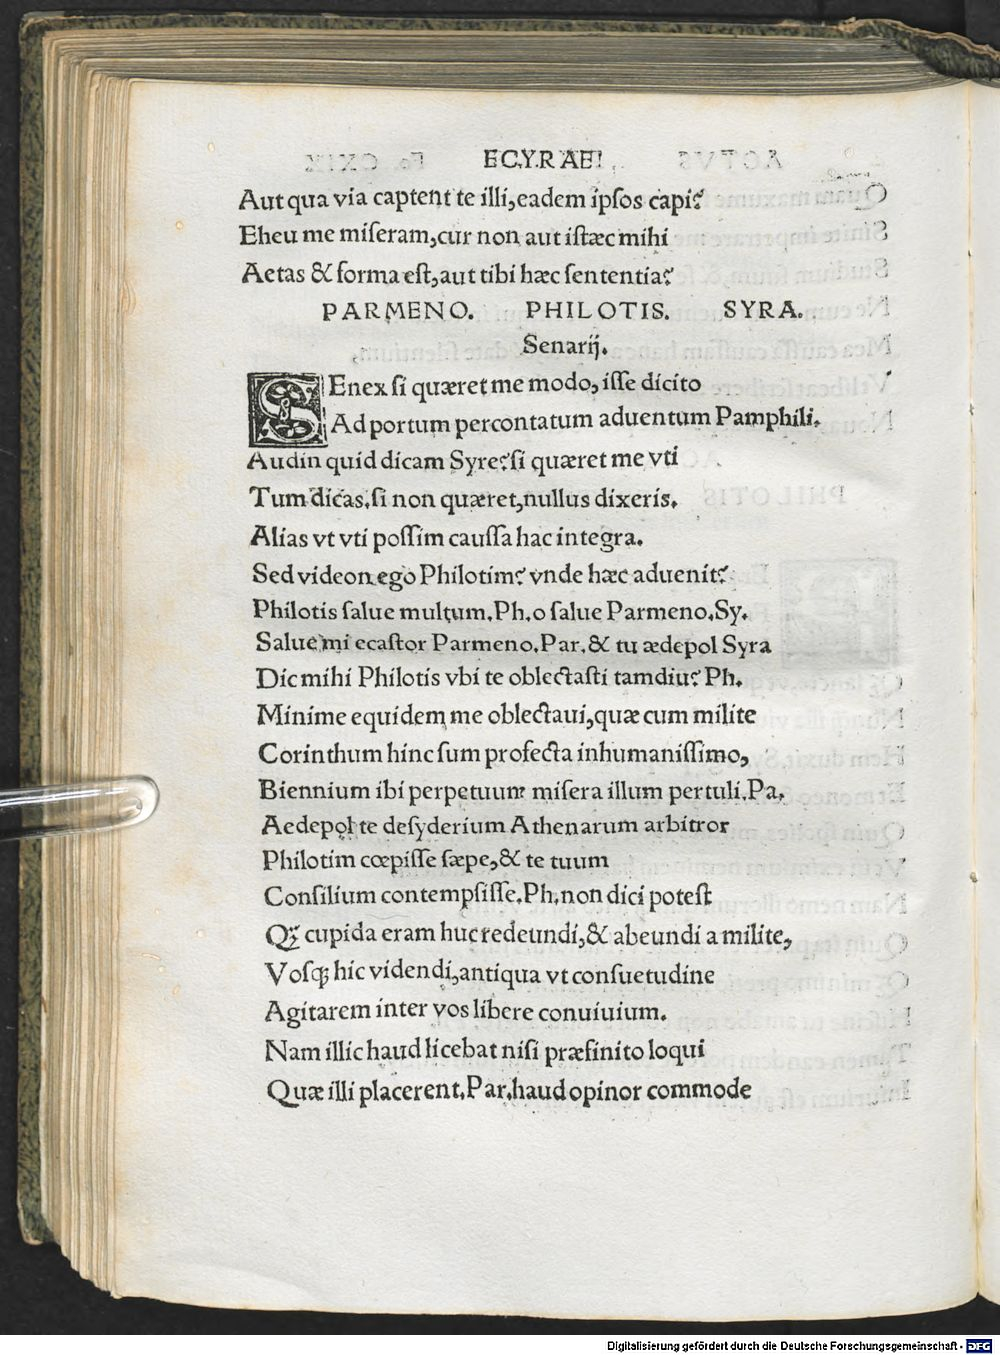 ECYRAE
Aut qua via captent te illi, eadem ipsos capi?
Eheu me miseram, cur non aut istæc mihi
Aetas & forma est, aut tibi hæc sententia?
PARMENO. PHILOTIS. SYRA.
Senarij.
SEnex si quæret me modo, isse dicito
Ad portum percontatum aduentum Pamphili.
Audin quid dicam Syre? si quæret me vti
Tum dicas. si non quæret, nullus dixeris.
Alias vt vti possim caussa hac integra.
Sed videon ego Philotim? vnde hæc aduenit?
Philotis salue multum. Ph. o salue Parmeno. Sy.
Salue mi ecastor Parmeno. Par. & tu ædepol Syra
Dic mihi Philotis vbi te oblectasti tamdiu? Ph.
Minime equidem me oblectaui, quæ cum milite
Corinthum hinc sum profecta inhumanissimo,
Biennium ibi perpetuum misera illum pertuli. Pa.
Aedepol te desyderium Athenarum arbitror
Philotim cœpisse sæpe, & te tuum
Consilium contempsisse. Ph. non dici potest
Qꝫ cupida eram huc redeundi, & abeundi a milite,
Vosqꝫ hic videndi, antiqua vt consuetudine
Agitarem inter vos libere conuiuium.
Nam illic haud licebat nisi præfinito loqui
Quæ illi placerent. Par. haud opinor commode
Digitalisierung gefördert durch die Deutsche Forschungsgemeinschaft - DFG